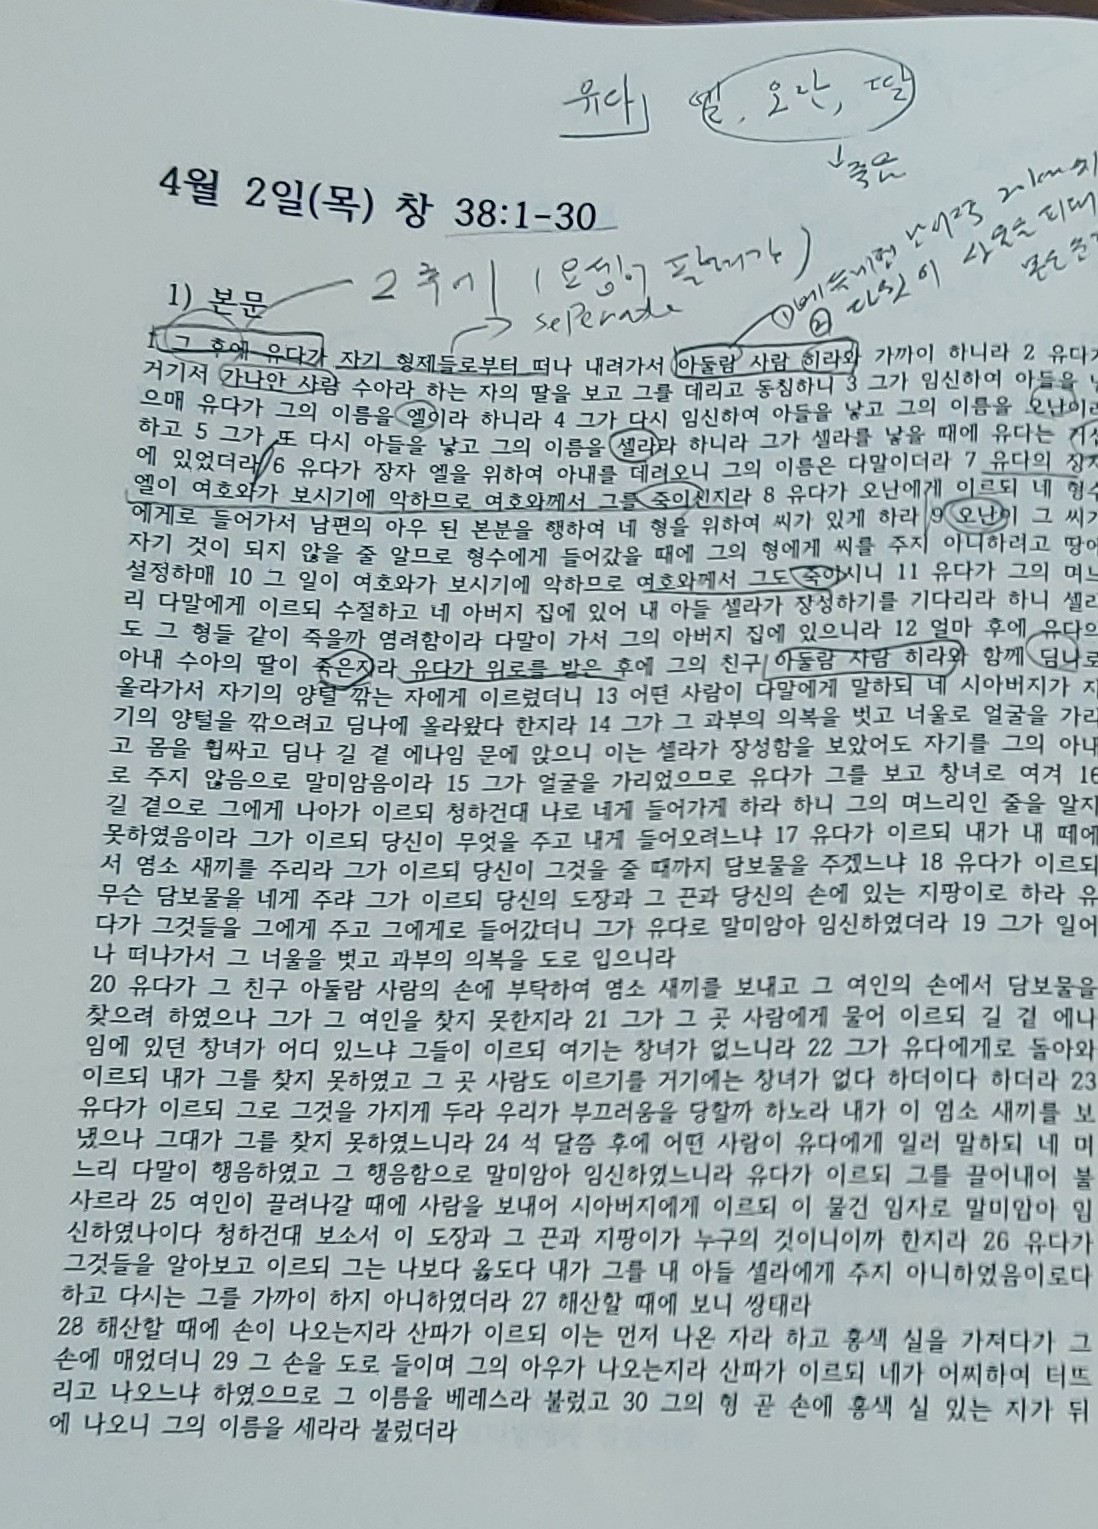 유다 엘, 오난, 딸
↓죽음
4월 2일(목) 창 38:1-30
1) 본문
그 후에 (요셉이 팔려가)
seperade
① ②
다윗이
1 그 후에 유다가 자기 형제들로부터 떠나 내려가서 아둘람 사람 히라와 가까이 하니라 2 유다가
거기서 가나안 사람 수아라 하는 자의 딸을 보고 그를 데리고 동침하니 3 그가 임신하여 아들을 낳
으매 유다가 그의 이름을 엘이라 하니라 4 그가 다시 임신하여 아들을 낳고 그의 이름을 오난이라
하고 5 그가 또 다시 아들을 낳고 그의 이름을 셀라라 하니라 그가 셀라를 낳을 때에 유다는 거십
에 있었더라 6 유다가 장자 엘을 위하여 아내를 데려오니 그의 이름은 다말이더라 7 유다의 장자
엘이 여호와가 보시기에 악하므로 여호와께서 그를 죽이신지라 8 유다가 오난에게 이르되 네 형수
에게로 들어가서 남편의 아우 된 본분을 행하여 네 형을 위하여 씨가 있게 하라 9 오난이 그 씨가
자기 것이 되지 않을 줄 알므로 형수에게 들어갔을 때에 그의 형에게 씨를 주지 아니하려고 땅에
설정하매 10 그 일이 여호와가 보시기에 악하므로 여호와께서 그도 죽이시니 11 유다가 그의 며느
리 다말에게 이르되 수절하고 네 아버지 집에 있어 내 아들 셀라가 장성하기를 기다리라 하니 셀라
도 그 형들 같이 죽을까 염려함이라 다말이 가서 그의 아버지 집에 있으니라 12 얼마 후에 유다의
아내 수아의 딸이 죽은지라 유다가 위로를 받은 후에 그의 친구 아둘람 사람 히라와 함께 딤나로
올라가서 자기의 양털 깎는 자에게 이르렀더니 13 어떤 사람이 다말에게 말하되 네 시아버지가 자
기의 양털을 깎으려고 딤나에 올라왔다 한지라 14 그가 그 과부의 의복을 벗고 너울로 얼굴을 가리
고 몸을 휩싸고 딤나 길 곁 에나임 문에 앉으니 이는 셀라가 장성함을 보았어도 자기를 그의 아내
로 주지 않음으로 말미암음이라 15 그가 얼굴을 가리었으므로 유다가 그를 보고 창녀로 여겨 16
길 곁으로 그에게 나아가 이르되 청하건대 나로 네게 들어가게 하라 하니 그의 며느리인 줄을 알지
못하였음이라 그가 이르되 당신이 무엇을 주고 내게 들어오려느냐 17 유다가 이르되 내가 내 떼에
서 염소 새끼를 주리라 그가 이르되 당신이 그것을 줄 때까지 담보물을 주겠느냐 18 유다가 이르되
무슨 담보물을 네게 주랴 그가 이르되 당신의 도장과 그 끈과 당신의 손에 있는 지팡이로 하라 유
다가 그것들을 그에게 주고 그에게로 들어갔더니 그가 유다로 말미암아 임신하였더라 19 그가 일어
나 떠나가서 그 너울을 벗고 과부의 의복을 도로 입으니라
20 유다가 그 친구 아둘람 사람의 손에 부탁하여 염소 새끼를 보내고 그 여인의 손에서 담보물을
찾으려 하였으나 그가 그 여인을 찾지 못한지라 21 그가 그 곳 사람에게 물어 이르되 길 곁 에나
임에 있던 창녀가 어디 있느냐 그들이 이르되 여기는 창녀가 없느니라 22 그가 유다에게로 돌아와
이르되 내가 그를 찾지 못하였고 그 곳 사람도 이르기를 거기에는 창녀가 없다 하더이다 하더라 23
유다가 이르되 그로 그것을 가지게 두라 우리가 부끄러움을 당할까 하노라 내가 이 염소 새끼를 보
냈으나 그대가 그를 찾지 못하였느니라 24 석 달쯤 후에 어떤 사람이 유다에게 일러 말하되 네 며
느리 다말이 행음하였고 그 행음함으로 말미암아 임신하였느니라 유다가 이르되 그를 끌어내어 불
사르라 25 여인이 끌려나갈 때에 사람을 보내어 시아버지에게 이르되 이 물건 임자로 말미암아 임
신하였나이다 청하건대 보소서 이 도장과 그 끈과 지팡이가 누구의 것이니이까 한지라 26 유다가
그것들을 알아보고 이르되 그는 나보다 옳도다 내가 그를 내 아들 셀라에게 주지 아니하였음이로다
하고 다시는 그를 가까이 하지 아니하였더라 27 해산할 때에 보니 쌍태라
28 해산할 때에 손이 나오는지라 산파가 이르되 이는 먼저 나온 자라 하고 홍색 실을 가져다가 그
손에 매었더니 29 그 손을 도로 들이며 그의 아우가 나오는지라 산파가 이르되 네가 어찌하여 터뜨
리고 나오느냐 하였으므로 그 이름을 베레스라 불렀고 30 그의 형 곧 손에 홍색 실 있는 자가 뒤
에 나오니 그의 이름을 세라라 불렀더라